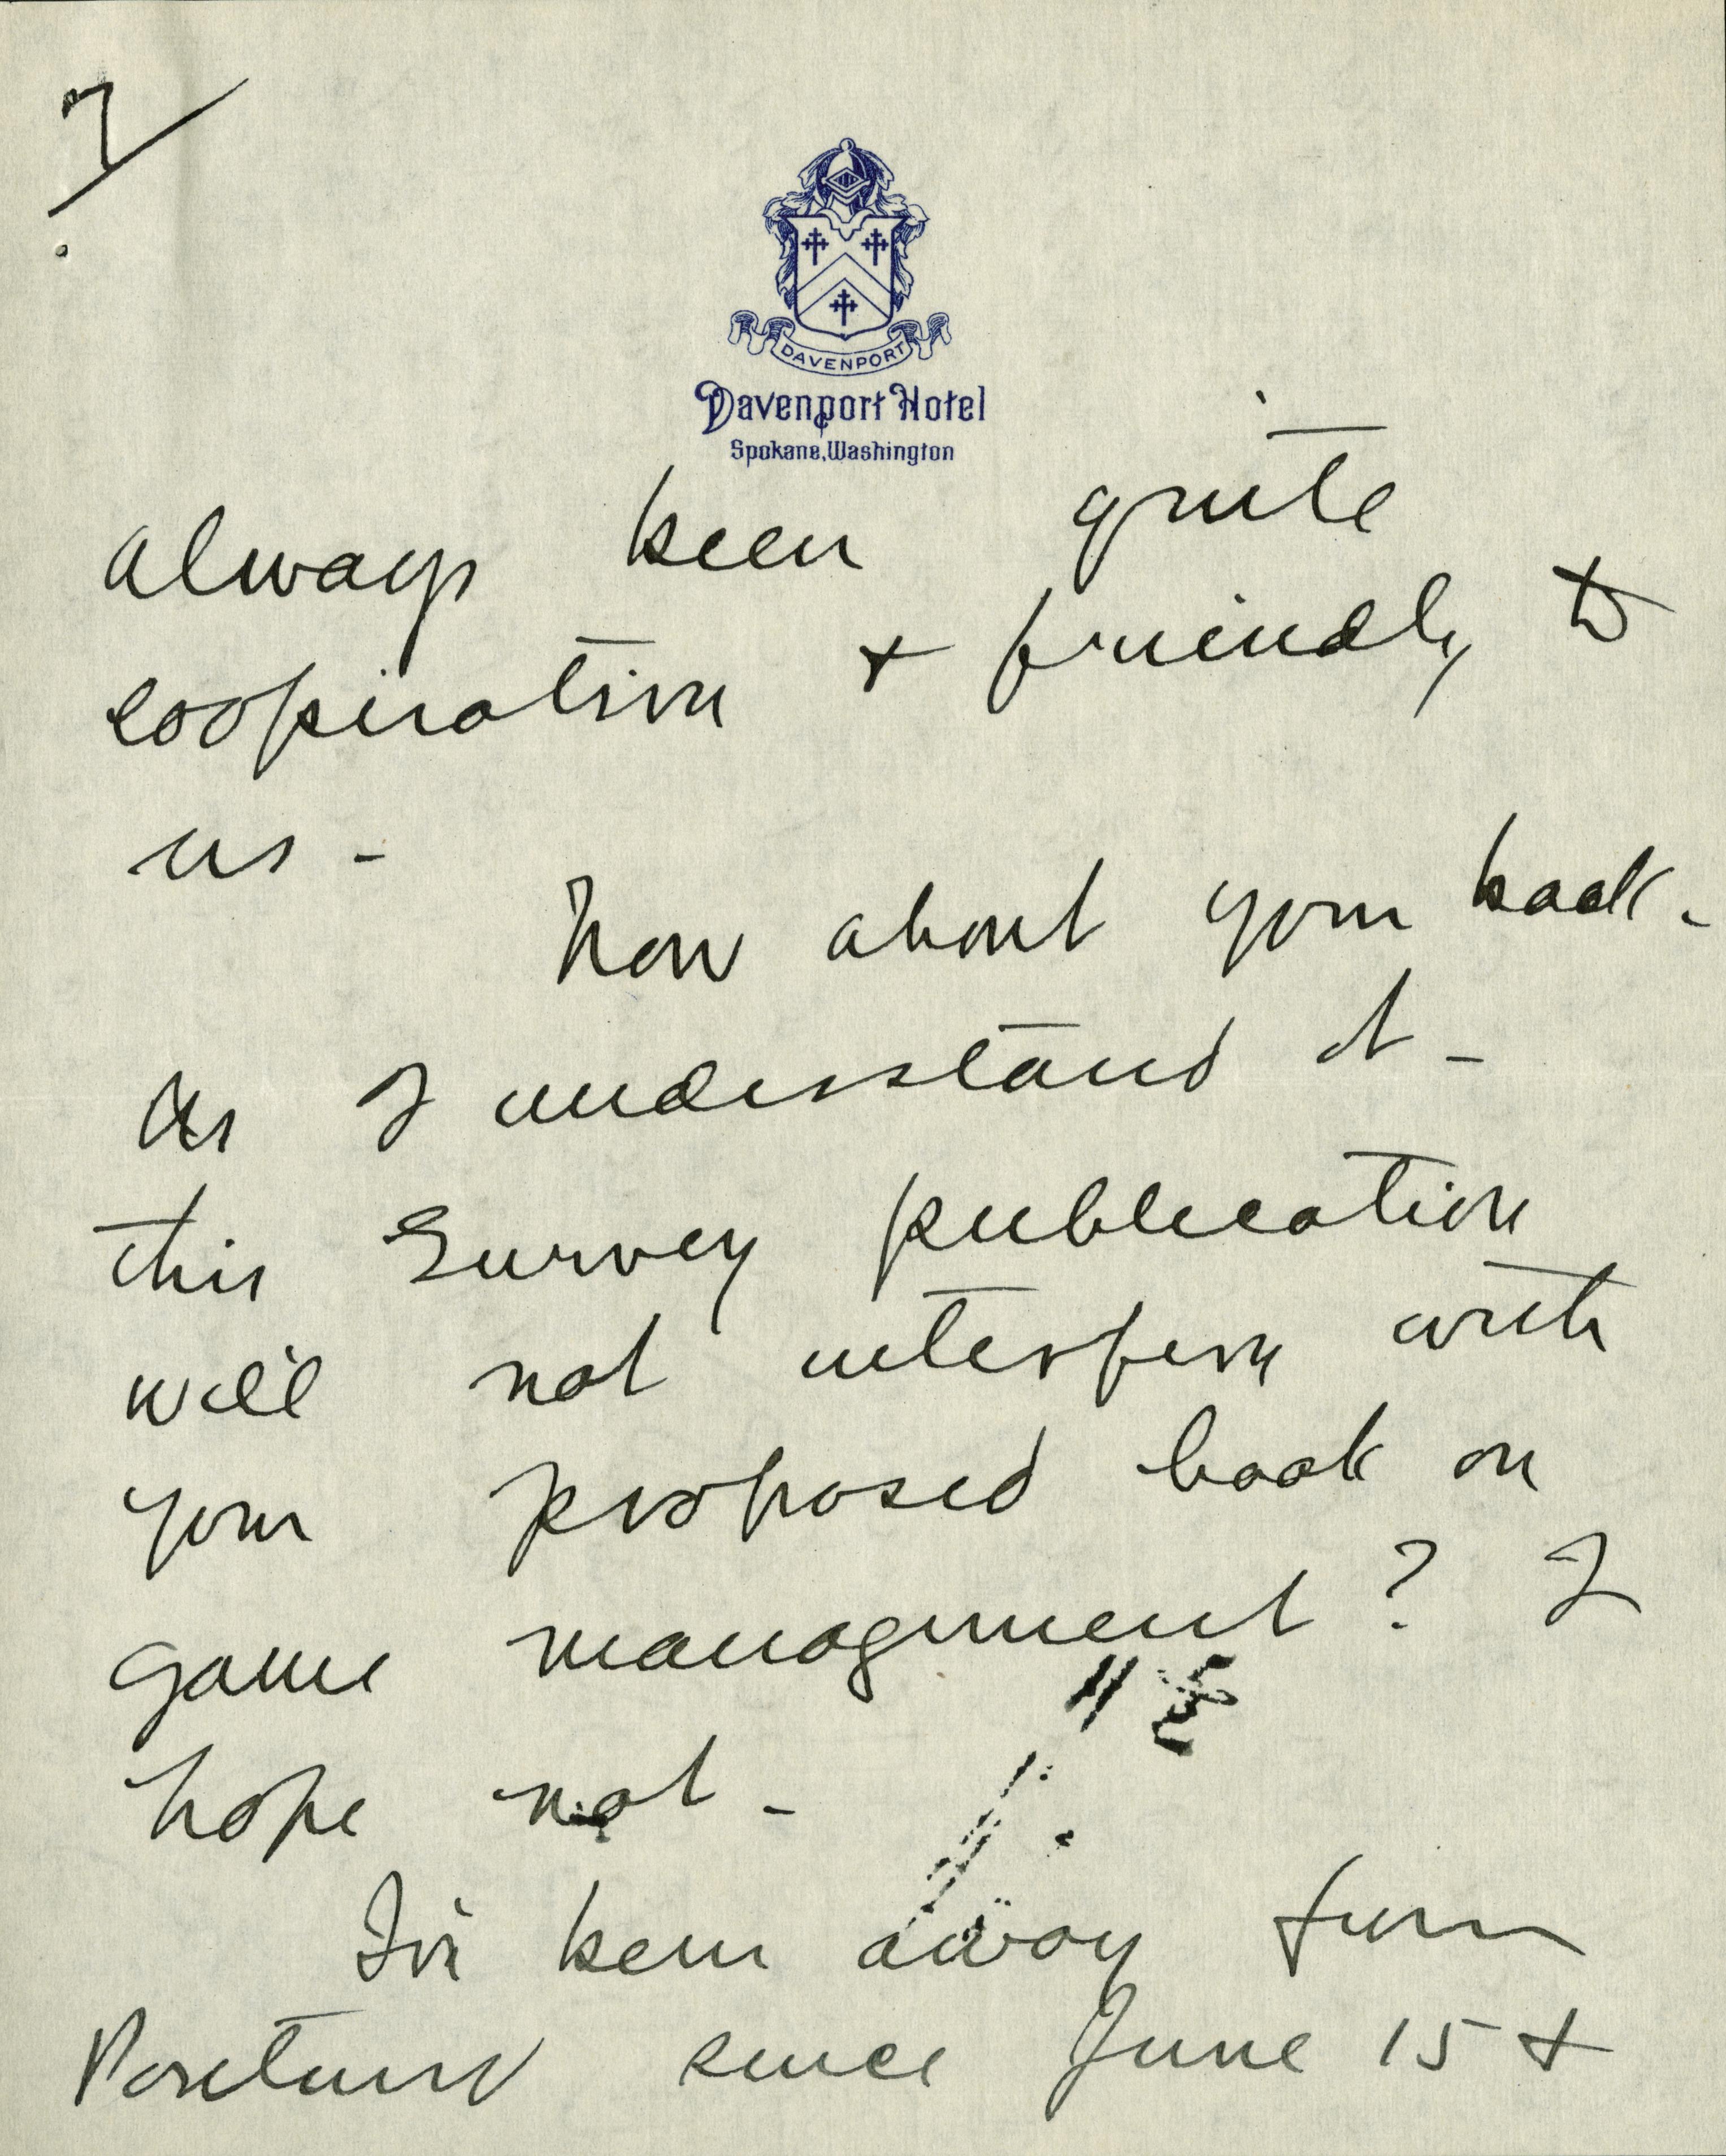 7
DAVENPORT
Davenport Hotel
Spokane, Washington
always been quite
cooperative + friendly to
us -
How about your book -
As I understand it -
this Survey publication
will not interfere with
your proposed book on
game management? I
hope not -
I've been away from
Portland since June 15 +